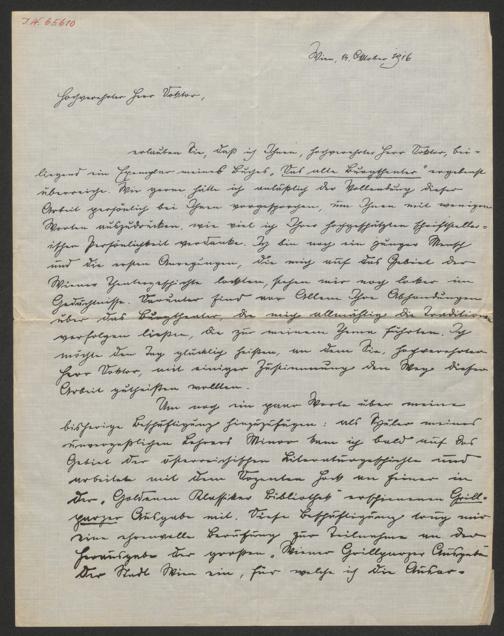 I.N. 65610
Wien, 14. Oktober 1916
Hochverehrter Herr Doktor,
erlauben Sie, daß ich Ihnen, hochverehrter Herr Doktor, bei-
liegend ein Exemplar meines Buches „Das alte Burgtheater" ergebenst
überreiche. Wie gerne hätte ich anläßlich der Vollendung dieser
Arbeit persönlich bei Ihnen vorgesprochen, um Ihnen mit wenigen
Worten auszudrücken, wie viel ich Ihrer hochgeschätzten schriftstelle-
rischen Persönlichkeit verdanke. Ich bin noch ein junger Mensch
und die ersten Anregungen, die mich auf das Gebiet der
Wiener Theatergeschichte lockten, stehen mir noch locker im
Gedächtnisse. Darunter sind vor Allem Ihre Abhandlungen
über das Burgtheater, die mich allmählig die Tradition
verfolgen ließen, die zu meinem Thema führten. Ich
möchte den Tag glücklich heißen, an dem Sie, hochverehrter
Herr Doktor, mit einiger Zustimmung den Weg dieser
Arbeit gutheißen wollten.
Um noch ein paar Worte über meine
bisherige Beschäftigung hinzuzufügen: als Schüler meines
unvergeßlichen Lehrers Minor kam ich bald auf das
Gebiet der österreichischen Literaturgeschichte und
arbeitete mit dem Dozenten Hock an seiner in
der „Goldenen Klassiker Bibliothek" erschienenen Grill-
parzer Ausgabe mit. Diese Beschäftigung trug mir
eine ehrenvolle Berufung zur Teilnahme an der
Herausgabe der großen „Wiener Grillparzer Ausgabe
der Stadt Wien ein, für welche ich die